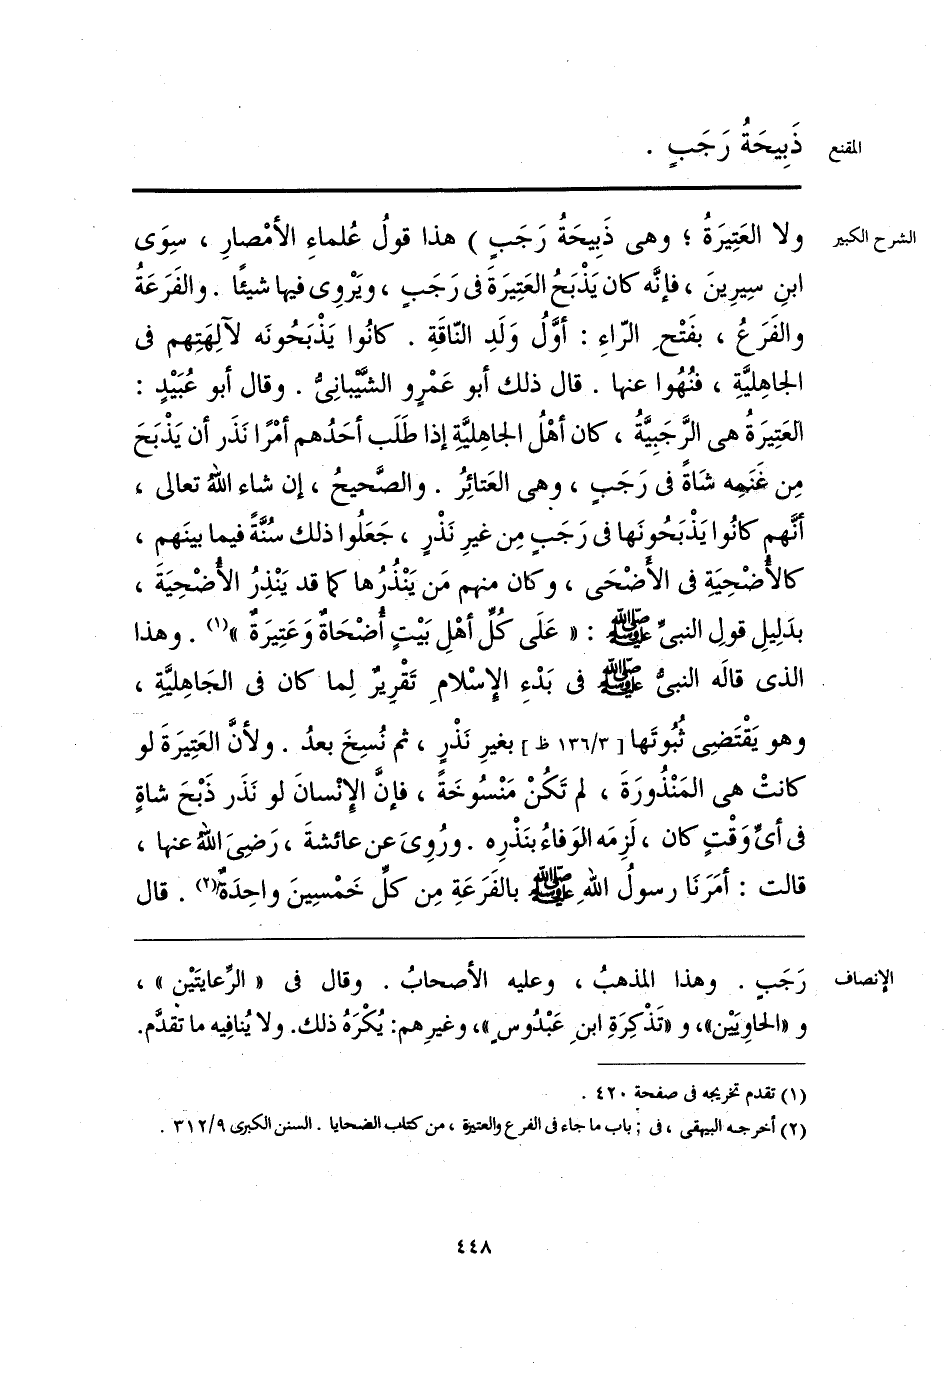 المقنع ذَبِيحَةُ رَجَبٍ .
الشرح الكبير ولا العَتِيرَةُ ؛ وهى ذَبِيحَةُ رَجَبٍ ) هذا قولُ عُلماءِ الأمْصارِ ، سِوَى
ابنِ سِيرِينَ ، فإنَّه كان يَذْبَحُ العَتِيرَةَ فى رَجَبٍ ، ويَرْوِى فيها شيئًا . والفَرَعَةُ
والفَرَعُ ، بفَتْحِ الرّاءِ : أوَّلُ وَلَدِ النّاقَةِ . كانُوا يَذْبَحُونَه لآلِهَتِهم فى
الجاهِليَّةِ ، فنُهُوا عنها . قال ذلك أبو عَمْرٍو الشَّيْبانِىُّ . وقال أبو عُبَيْدٍ :
العَتِيرَةُ هى الرَّجَبِيَّةُ ، كان أهْلُ الجاهِليَّةِ إذا طَلَب أحَدُهم أمْرًا نَذَر أن يَذْبَحَ
مِن غَنَمِه شَاةً فى رَجَبٍ ، وهى العَتائِرُ . والصَّحيحُ ، إن شاء اللهُ تعالى ،
أنَّهم كانُوا يَذْبَحُونَها فى رَجَبٍ مِن غيرِ نَذْرٍ ، جَعَلُوا ذلك سُنَّةً فيما بينَهم ،
كالأُضْحِيَةِ فى الأَضْحَى ، وكان منهم مَن يَنْذُرُها كما قد يَنْذِرُ الأُضْحِيَةَ ،
بدَلِيلِ قولِ النبىِّ ﷺ : « عَلَى كُلِّ أهْلِ بَيْتٍ أُضْحَاةٌ وَعَتِيرَةٌ »(١) . وهذا
الذى قالَه النبىُّ ﷺ فى بَدْءِ الإِسْلامِ تَقْرِيرٌ لِما كان فى الجَاهِليَّةِ ،
وهو يَقْتَضِى ثُبُوتَها [ ١٣٦/٣ ظ ] بغيرِ نَذْرٍ ، ثم نُسِخَ بعدُ . ولأنَّ العَتِيرَةَ لو
كانتْ هى المَنْذُورَةَ ، لم تَكُنْ مَنْسُوخَةً ، فإنَّ الإِنْسانَ لو نَذَر ذَبْحَ شاةٍ
فى أىِّ وَقْتٍ كان ، لَزِمَه الوَفاءُ بنَذْرِه . ورُوِىَ عن عائشةَ ، رَضِىَ اللهُ عنها ،
قالت : أمَرَنَا رسولُ اللهِ ﷺ بالفَرَعَةِ مِن كلِّ خَمْسِينَ واحِدَةٌ(٢) . قال
الإنصاف رَجَبٍ . وهذا المذهبُ ، وعليه الأصحابُ . وقال فى « الرِّعايتَيْن » ،
و «الحاوِيَيْن»، و «تَذْكِرَةِ ابنِ عَبْدُوسٍ»، وغيرِهم: يُكْرَهُ ذلك. ولا يُنافِيه ما تقدَّم.
(١) تقدم تخريجه فى صفحة ٤٢٠ .
(٢) أخرجه البيهقى ، فى : باب ما جاء فى الفرع والعتيرة ، من كتاب الضحايا . السنن الكبرى ٣١٢/٩ .
٤٤٨